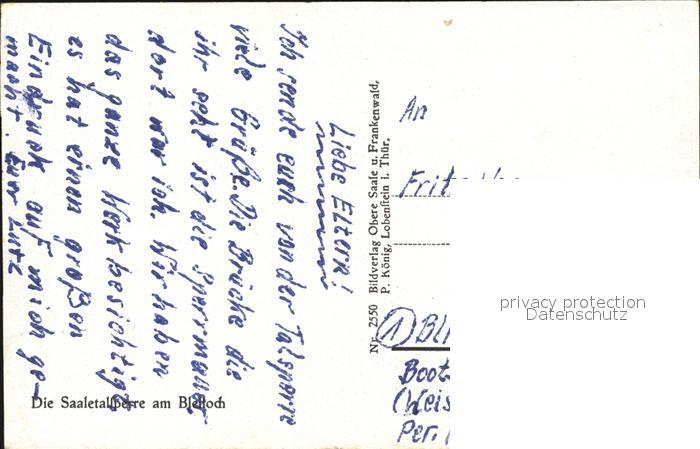 Liebe Eltern!
Ich sende euch von der Talsperre
viele Grüße. Die Brücke die
ihr seht ist die Sperrmauer
dort war ich. Wir haben
das ganze Werk besichtigt
es hat einen großen
Eindruck auf mich ge-
macht. Euer Lutz
Die Saaletalsperre am Bleiloch
Nr. 2550 Bildverlag Obere Saale u. Frankenwald,
P. König, Lobenstein i. Thür.
An
①
Boot
Per.
privacy protection
Datenschutz